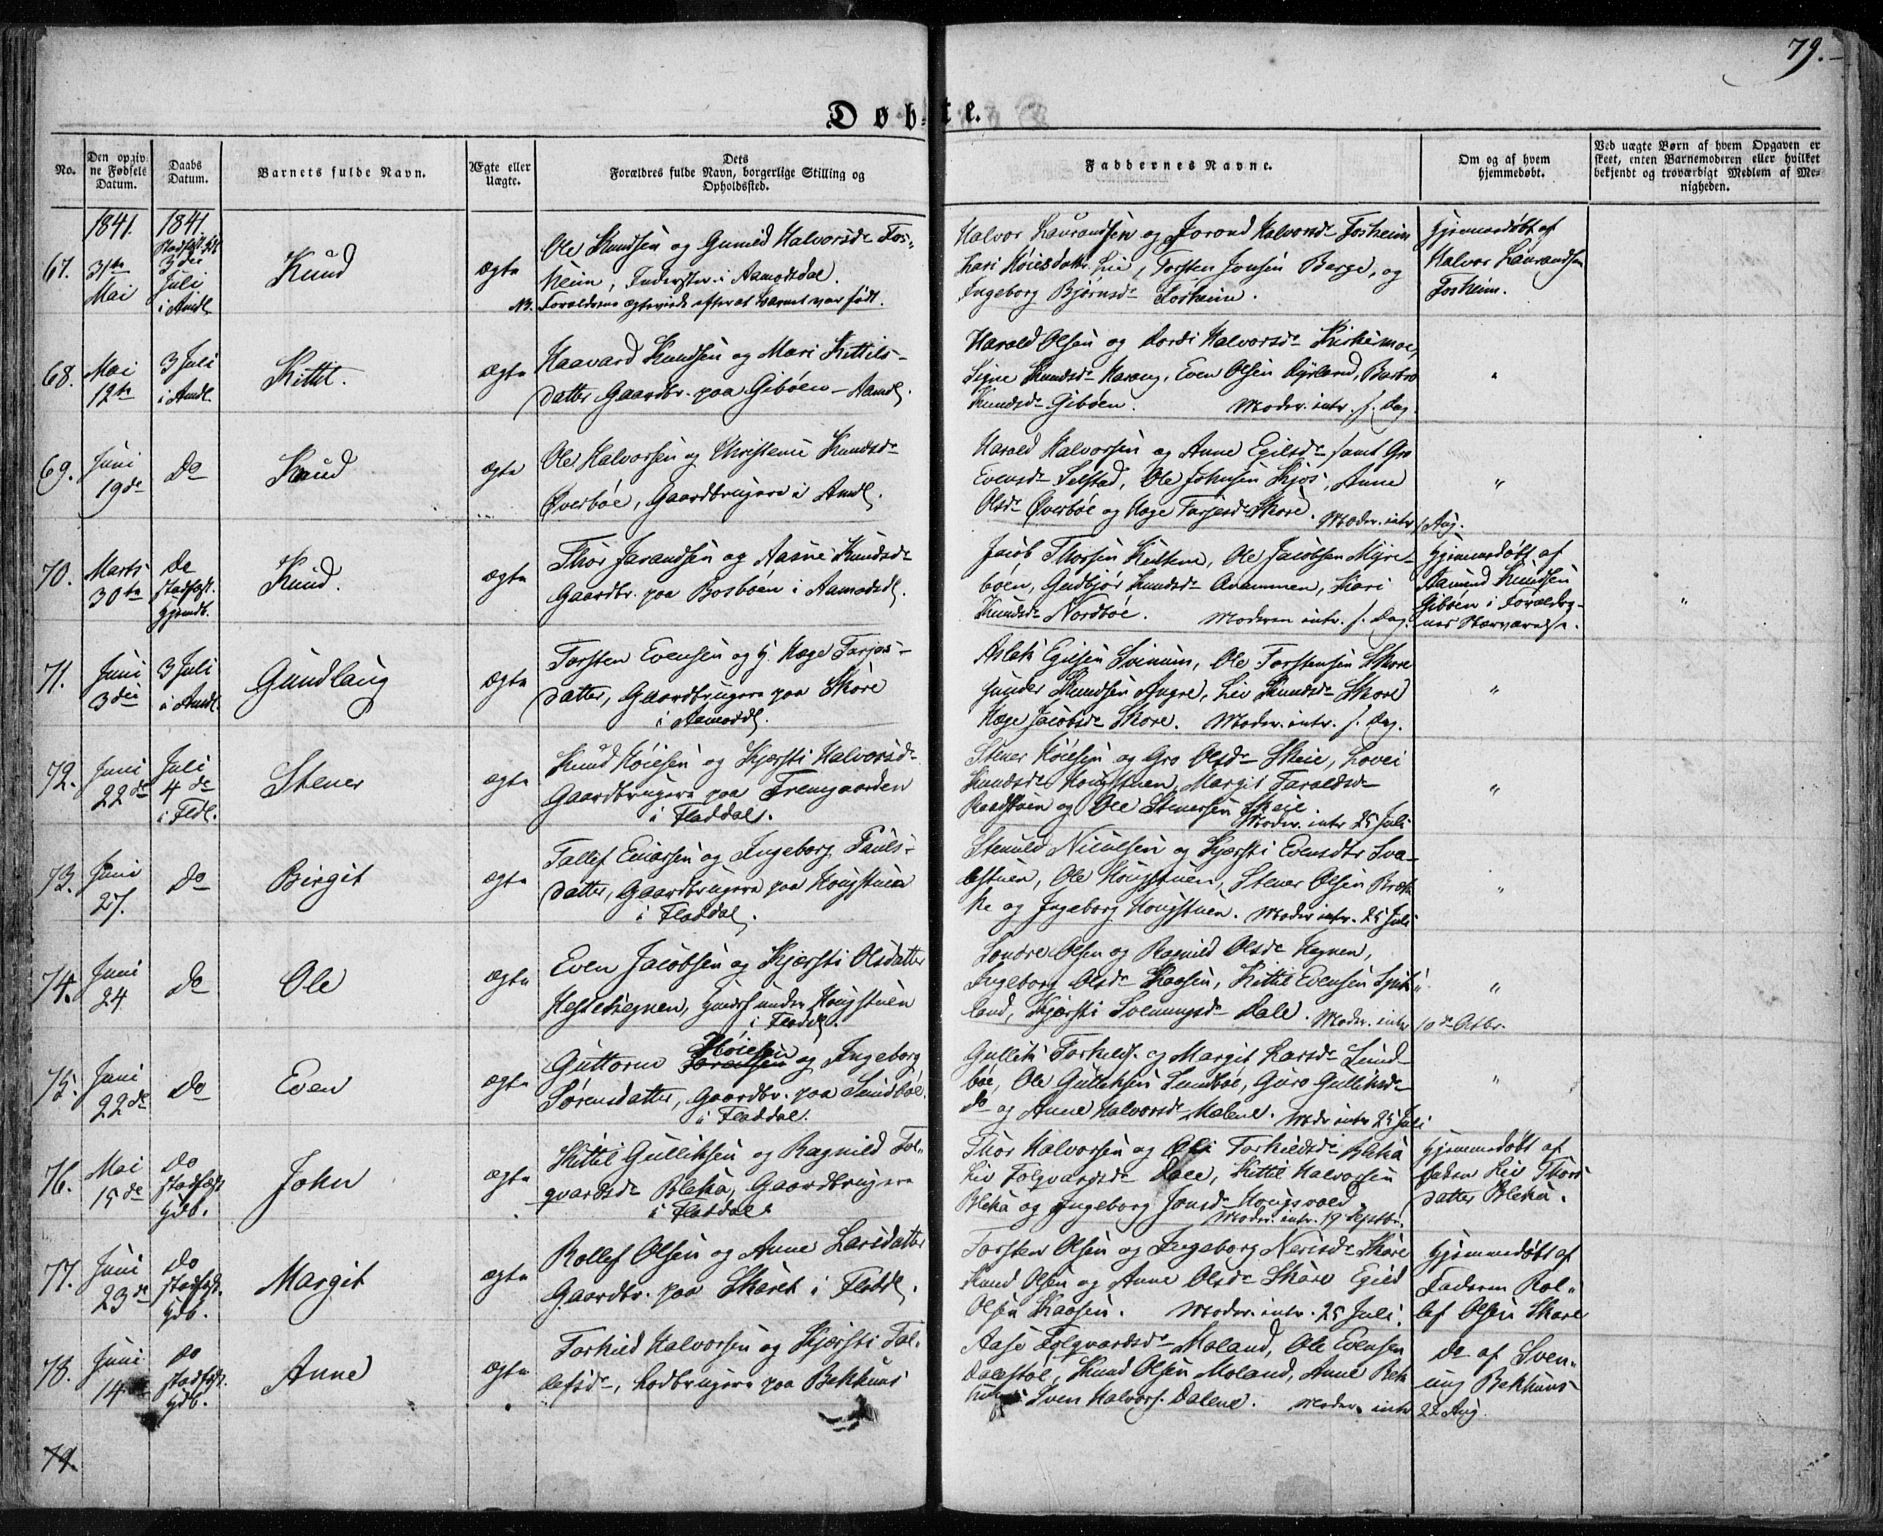 79.
Døbte.
No.
Den opgivne Fødsels Datum.
Daabs Datum.
Barnets fulde Navn.
Ægte eller Uægte.
Dets Forældres fulde Navn, borgerlige Stilling og Opholdssted.
Faddernes Navne.
Om og af hvem hjemmedøbt.
Ved uægte Børn af hvem Opgaven er skeet, enten Barnemoderen eller hvilket bekjendt og troværdigt Medlem af Menigheden.
1841.
1841.
67.
31te Mai
3die Juli i Amdl.
Knud
ægte
Ole Knudsen og Gunild Halvorsdr Fos-
heim, Inderster i Aamodsdal.
NB. Forældrene ægteviede efterat Barnet var født.
Halvor Laurandsen og Jorond Halvorsdr Fosheim
Kari Høiesdatter Lie, Torsten Jonsen Berge, og
Ingeborg Bjørnsdr Fosheim.
Hjemmedøbt af
Halvor Laurandsen
Fosheim.
68.
Mai 12te
3 Juli i Amdl.
Kittil.
ægte
Haavard Knudsen og Mari Kittils-
datter Gaardbr. paa Gibøen - Aamdl.
Harald Olsen og Dordi Halvorsdr Kirkemoe,
Signe Knudsdr Haave, Even Olsen Dyrland, Barbro
Knudsdr Gibøen. Moder. intr. s. Dag.
"
69.
Juni 19de
Do
Knud
ægte
Ole Halvorsen og Christense Knudsdr
Øverbøe, Gaardbrugere i Amdl.
Harald Halvorsen og Anne Egilsdr samt Gro
Evensdr Selstad, Ole Johnsen Kjos, Anne
Olsdr Øverbøe og Hæge Tarjesdr Skore. Moder. intr 1 Aug.
"
70.
Marts 30te
Do stadfæst. hjemdb.
Knud.
ægte
Thor Jarandsen og Aasne Knudsdr
Gaardbr. paa Bosbøen i Aamodsdl.
Jacob Thorsen, Ole Jacobsen Myre-
bøen, Gudbjør Knudsdr, Kari
Knudsdr Nordbøe. Moderen intr. s. Dag.
Hjemmedøbt af
Aamund Knudsen
Gibøen i Forældre-
nes Nærværelse.
"
71.
Juni 3die
3 Juli i Amdl.
Gundlaug
ægte
Torsten Evensen og H. Hæge Tarjes-
datter, Gaardbrugere paa Skore
i Aamodsdl.
Aslak Egilsen, Ole Torstensen Skore
Gunder Knudsen, Liv Knudsdr Skore
Hæge Jacobsdr Skore. Moder. intr. s. Dag.
"
72.
Juni 22de
Juli 4de i Fldl.
Stener
ægte
Knud Høiesen og Kjersti Halvorsdr
Gaardbrugere paa Fremgaarden
i Fladdal.
Stener Høiesen og Gro Olsdr Skeie, Lovei
Knudsdr Haugstuen, Margit Taraldsdr
Raadstuen og Ole Stenersen Skeie.
Moder. intr 25 Juli
"
73.
Juni 27.
Do
Birgit
ægte
Tallef Einarsen og Ingeborg Pauls-
datter, Gaardbrugere paa Hougstuen
i Fladdal.
Stenuld Niculsen og Kjersti Evensdtr Sva-
lestuen, Ole Hougstuen, Stener Olsen Bræk-
ke og Ingeborg Hougstuen. Moder intr. 25 Juli
"
74.
Juni 24
Do
Ole
ægte
Even Jacobsen og Kjersti Olsdatter
Hestehegnen, Huusf. under Hougstuen
i Fladdl.
Sondre Olsen og Ragnild Olsdr Hegnen,
Ingeborg Olsdr Kaasen, Kittil Evensen
land, Kjersti Svenungsdr Dale. Moder. intr 10de Octbr.
"
75.
Juni 22de
Do
Even
ægte
Guttorm Høiesen og Ingeborg
Sørensdatter, Gaardbr. paa Sundbøe.
i Fladdal.
Gullik Torkelds. og Margit Larsdr Sund-
bøe, Ole Gulliksen Sundbøe, Guro Gulliksdr
Do og Anne Halvorsdr Molene. Moder intr 25 Juli
"
76.
Mai 15de
Do stadfæst hjdb.
John
ægte
Kittil Gulliksen og Ragnild Fol-
qvardsdr Bleka, Gaardbrugere
i Flatdal.
Thor Halvorsen og Torkildsdr Bleka
Liv Folqvardsdr Dale, Kittil Halvorsen
Bleka og Ingeborg Jonsdr
Moder. intr. 19 Septbr.
Hjemmedøbt af
Liv Thors-
datter Bleka.
77.
Juni 23de
Do stadfæst. hjdb.
Margit
ægte
Rollef Olsen og Anne Larsdatter
Gaardbr. paa Skoret i Fladdl.
Torsten Olsen og Ingeborg Nerisdr Skore
Knud Olsen og Anne Olsdr Skore Egild
Olsen Kaasen. Moder. intr. 25 Juli.
Hjemmedøbt af
Faderen Rol-
lef Olsen Skore
78.
Juni 14de
Do stadfæst. hjdb.
Anne
ægte
Torkild Halvorsen og Kjersti Tal-
lefsdr, Lodbrugere paa Bekhuus
Aase Folqvardsdr Moland, Ole Evensen
Dalestøl, Knud Olsen Moland, Anne Bek-
huus Sven Halvors. Dalene. Moder. intr 22 Aug.
Do af Sven-
ung Bekhuus
79.